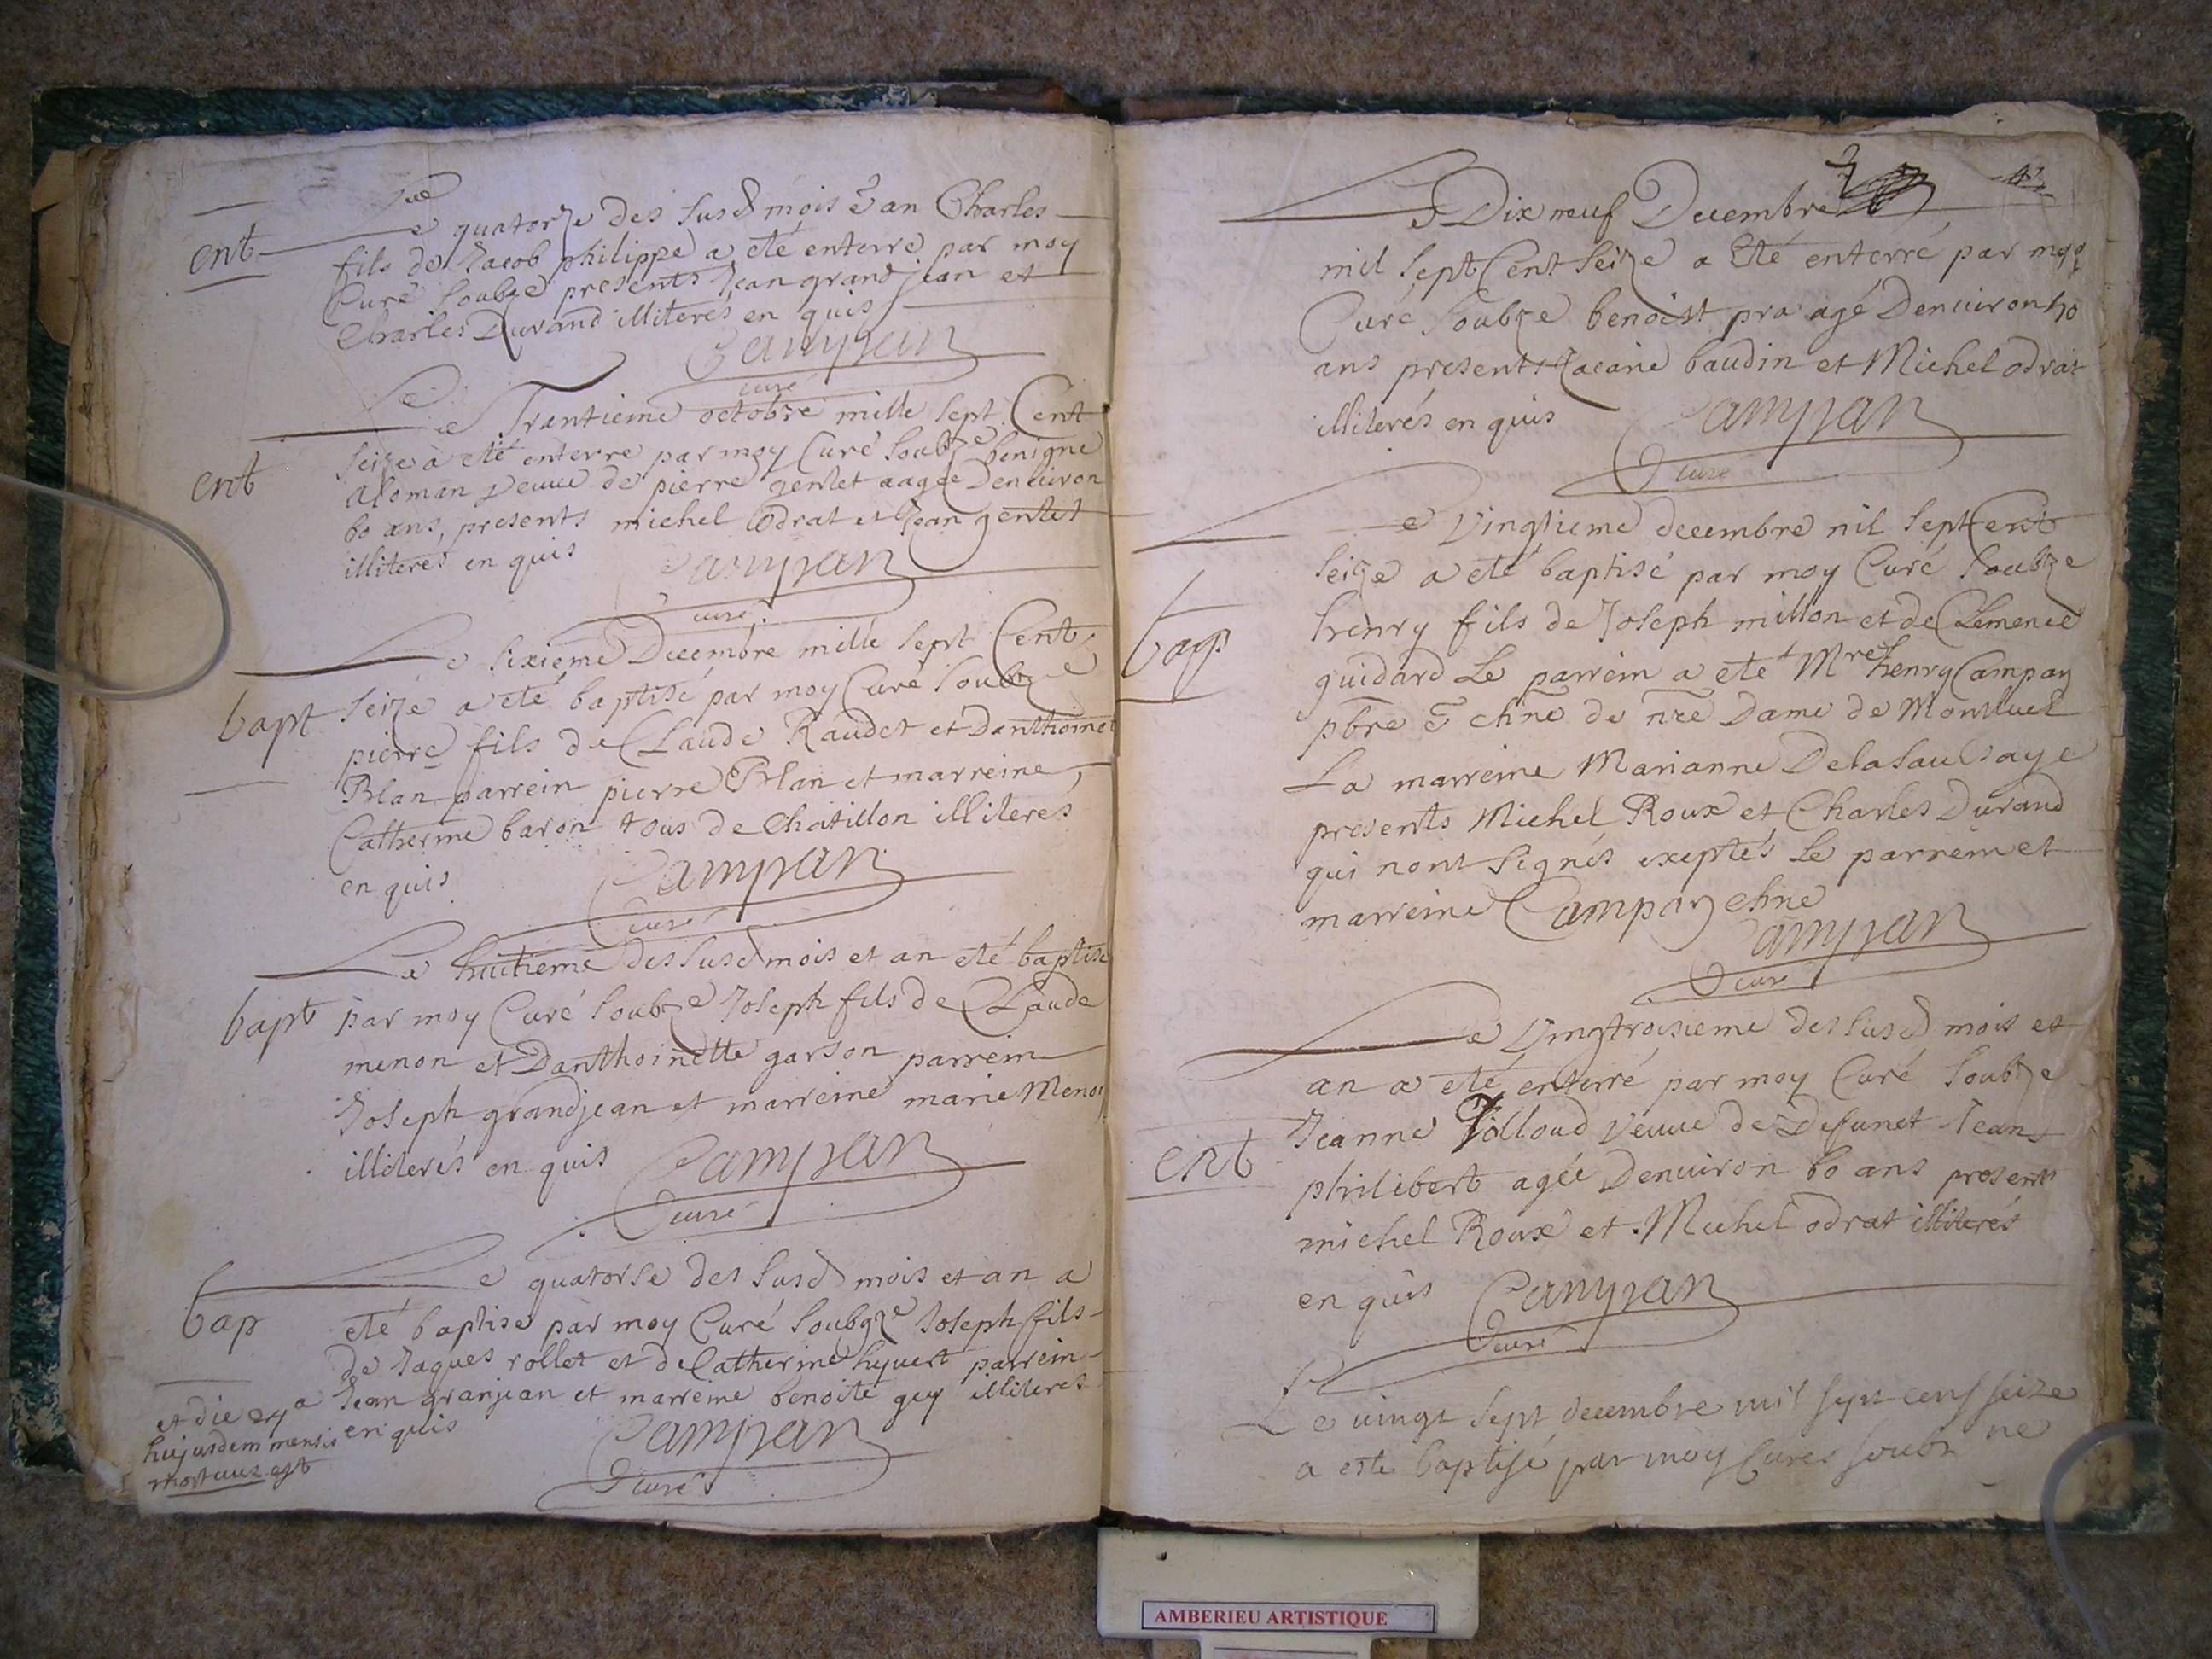 ent
Le quatorze des susd mois & an Charles
fils de Jacob philippe a eté enterré par moy
Curé soubze presents Jean grand jean et
Charles Durand illiterés en quis
Campan
curé
ent
Le Trantieme octobre mille sept Cent
seize a eté enterre par moy Curé soubze benigne
aloman veuve de pierre gentet aagée Denuiron
60 ans, presents michel Odrat et Jean gentet
illiterés en quis
Campan
curé
bapt
Le sixieme Decembre mille sept Cent
seize a eté baptisé par moy Curé soubze
pierre fils de Claude Raudet et Danthoinet
Blan parrein pierre Blan et marreine
Catherine baron tous de Chatillon illiterés
en quis
Campan
Curé
bapt
Le huitieme des susd mois et an eté baptise
par moy Curé soubze Joseph fils de Claude
menon et Danthoinette garson parrein
Joseph grandjean et marreine marie Menon
illiterés en quis
Campan
Curé
bap
Le quatorse des susd mois et an a
eté baptise par moy Curé soubgze Joseph fils
de Jaques rollet et de Catherine hyvert parrein
Jean granjean et marreine benoite guy illiteres
en quis
et die 24a
hujusdem mensis
mortuus est
Campan
Curé
Le Dix neuf Decembre
mil sept Cent seize a Eté enterré par moy
Curé soubze benoist pra agé Denuiron 40
ans presents baudin et Michel odrat
illiterés en quis
Campan
Curé
bap
Le Vingtieme decembre nil sept Cent
seize a eté baptisé par moy Curé soubze
henry fils de Joseph millon et de Clemence
guidard Le parrein a eté Mre henry Campan
pbre & chne de nre Dame de Montluel
La marreine Marianne Delasaulsaye
presents Michel Roux et Charles Durand
qui nont signés exeptés Le parrein et
marreine Campan chne
Campan
Curé
ent
Le Vingtroisieme des susd mois et
an a eté enterré par moy Curé soubze
Jeanne Jolloud veuue de Defunct Jean
philibert agée Denuiron 60 ans presents
michel Roux et Michel odrat illiterés
en quis
Campan
Curé
Le uingt sept decembre mil sept cens seize
a este baptisé par moy Curés soubz ne
AMBERIEU ARTISTIQUE